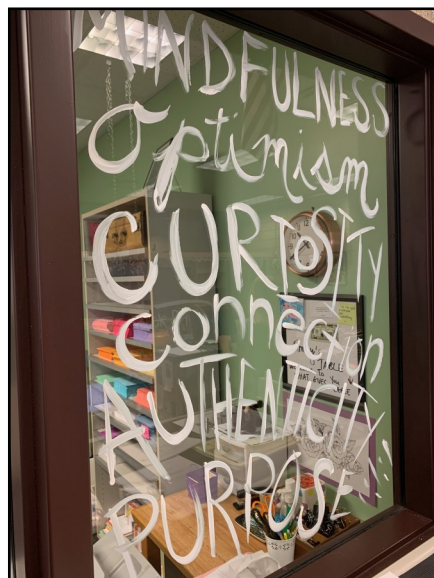 MINDFULNESS
Optimism
CURIOSITY
connection
AUTHENTICITY
PURPOSE